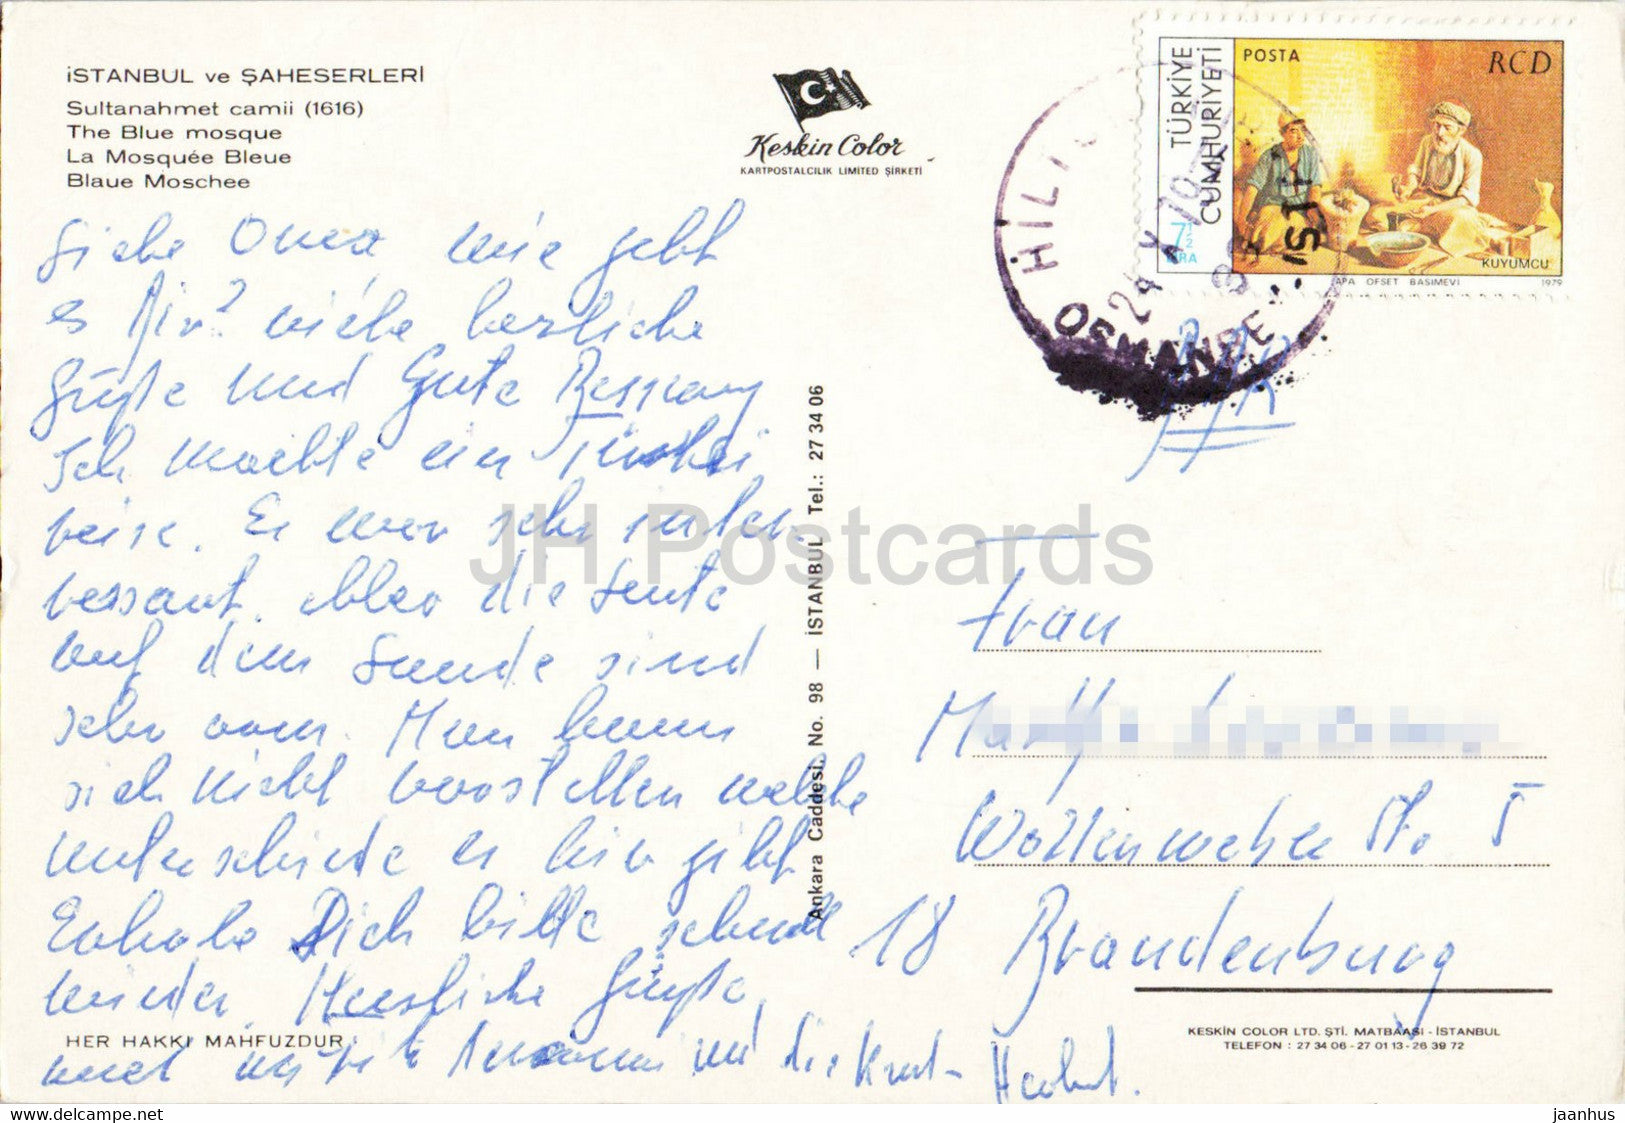 İSTANBUL ve ŞAHESERLERİ
Sultanahmet camii (1616)
The Blue mosque
La Mosquée Bleue
Blaue Moschee
Keskin Color
KARTPOSTALCILIK LIMITED ŞİRKETİ
TÜRKİYE
CUMHURİYETİ
POSTA
RCD
7½
LİRA
KUYUMCU
APA OFSET BASIMEVİ
1979
HİL
OSMANBE
İST
Liebe Oma wie geht
es Dir? viele herzliche
Grüße und Gute Besserung
Ich machte ein Türkei
reise. Es war sehr inter-
ressant. Aber die Leute
auf dem Lande sind
sehr arm. Man kann
sich nicht vorstellen welche
Unterschiede es hier gibt
Erhole Dich bitte schnell
wieder. Herzliche Grüße,
und die
Ankara Caddesi, No. 98 — İSTANBUL Tel.: 27 34 06
JH Postcards
DDR
Frau
Str. 5
18 Brandenburg
HER HAKKI MAHFUZDUR
KESKIN COLOR LTD. ŞTİ. MATBAASI - İSTANBUL
TELEFON : 27 34 06 - 27 01 13 - 26 39 72
Delcampe.net
jaanhus